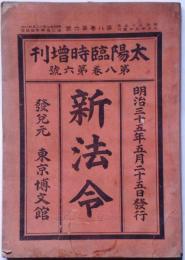 太陽臨時增刊
第八卷第六號
明治三十五年五月二十五日發行
新法令
發兌元 東京博文館